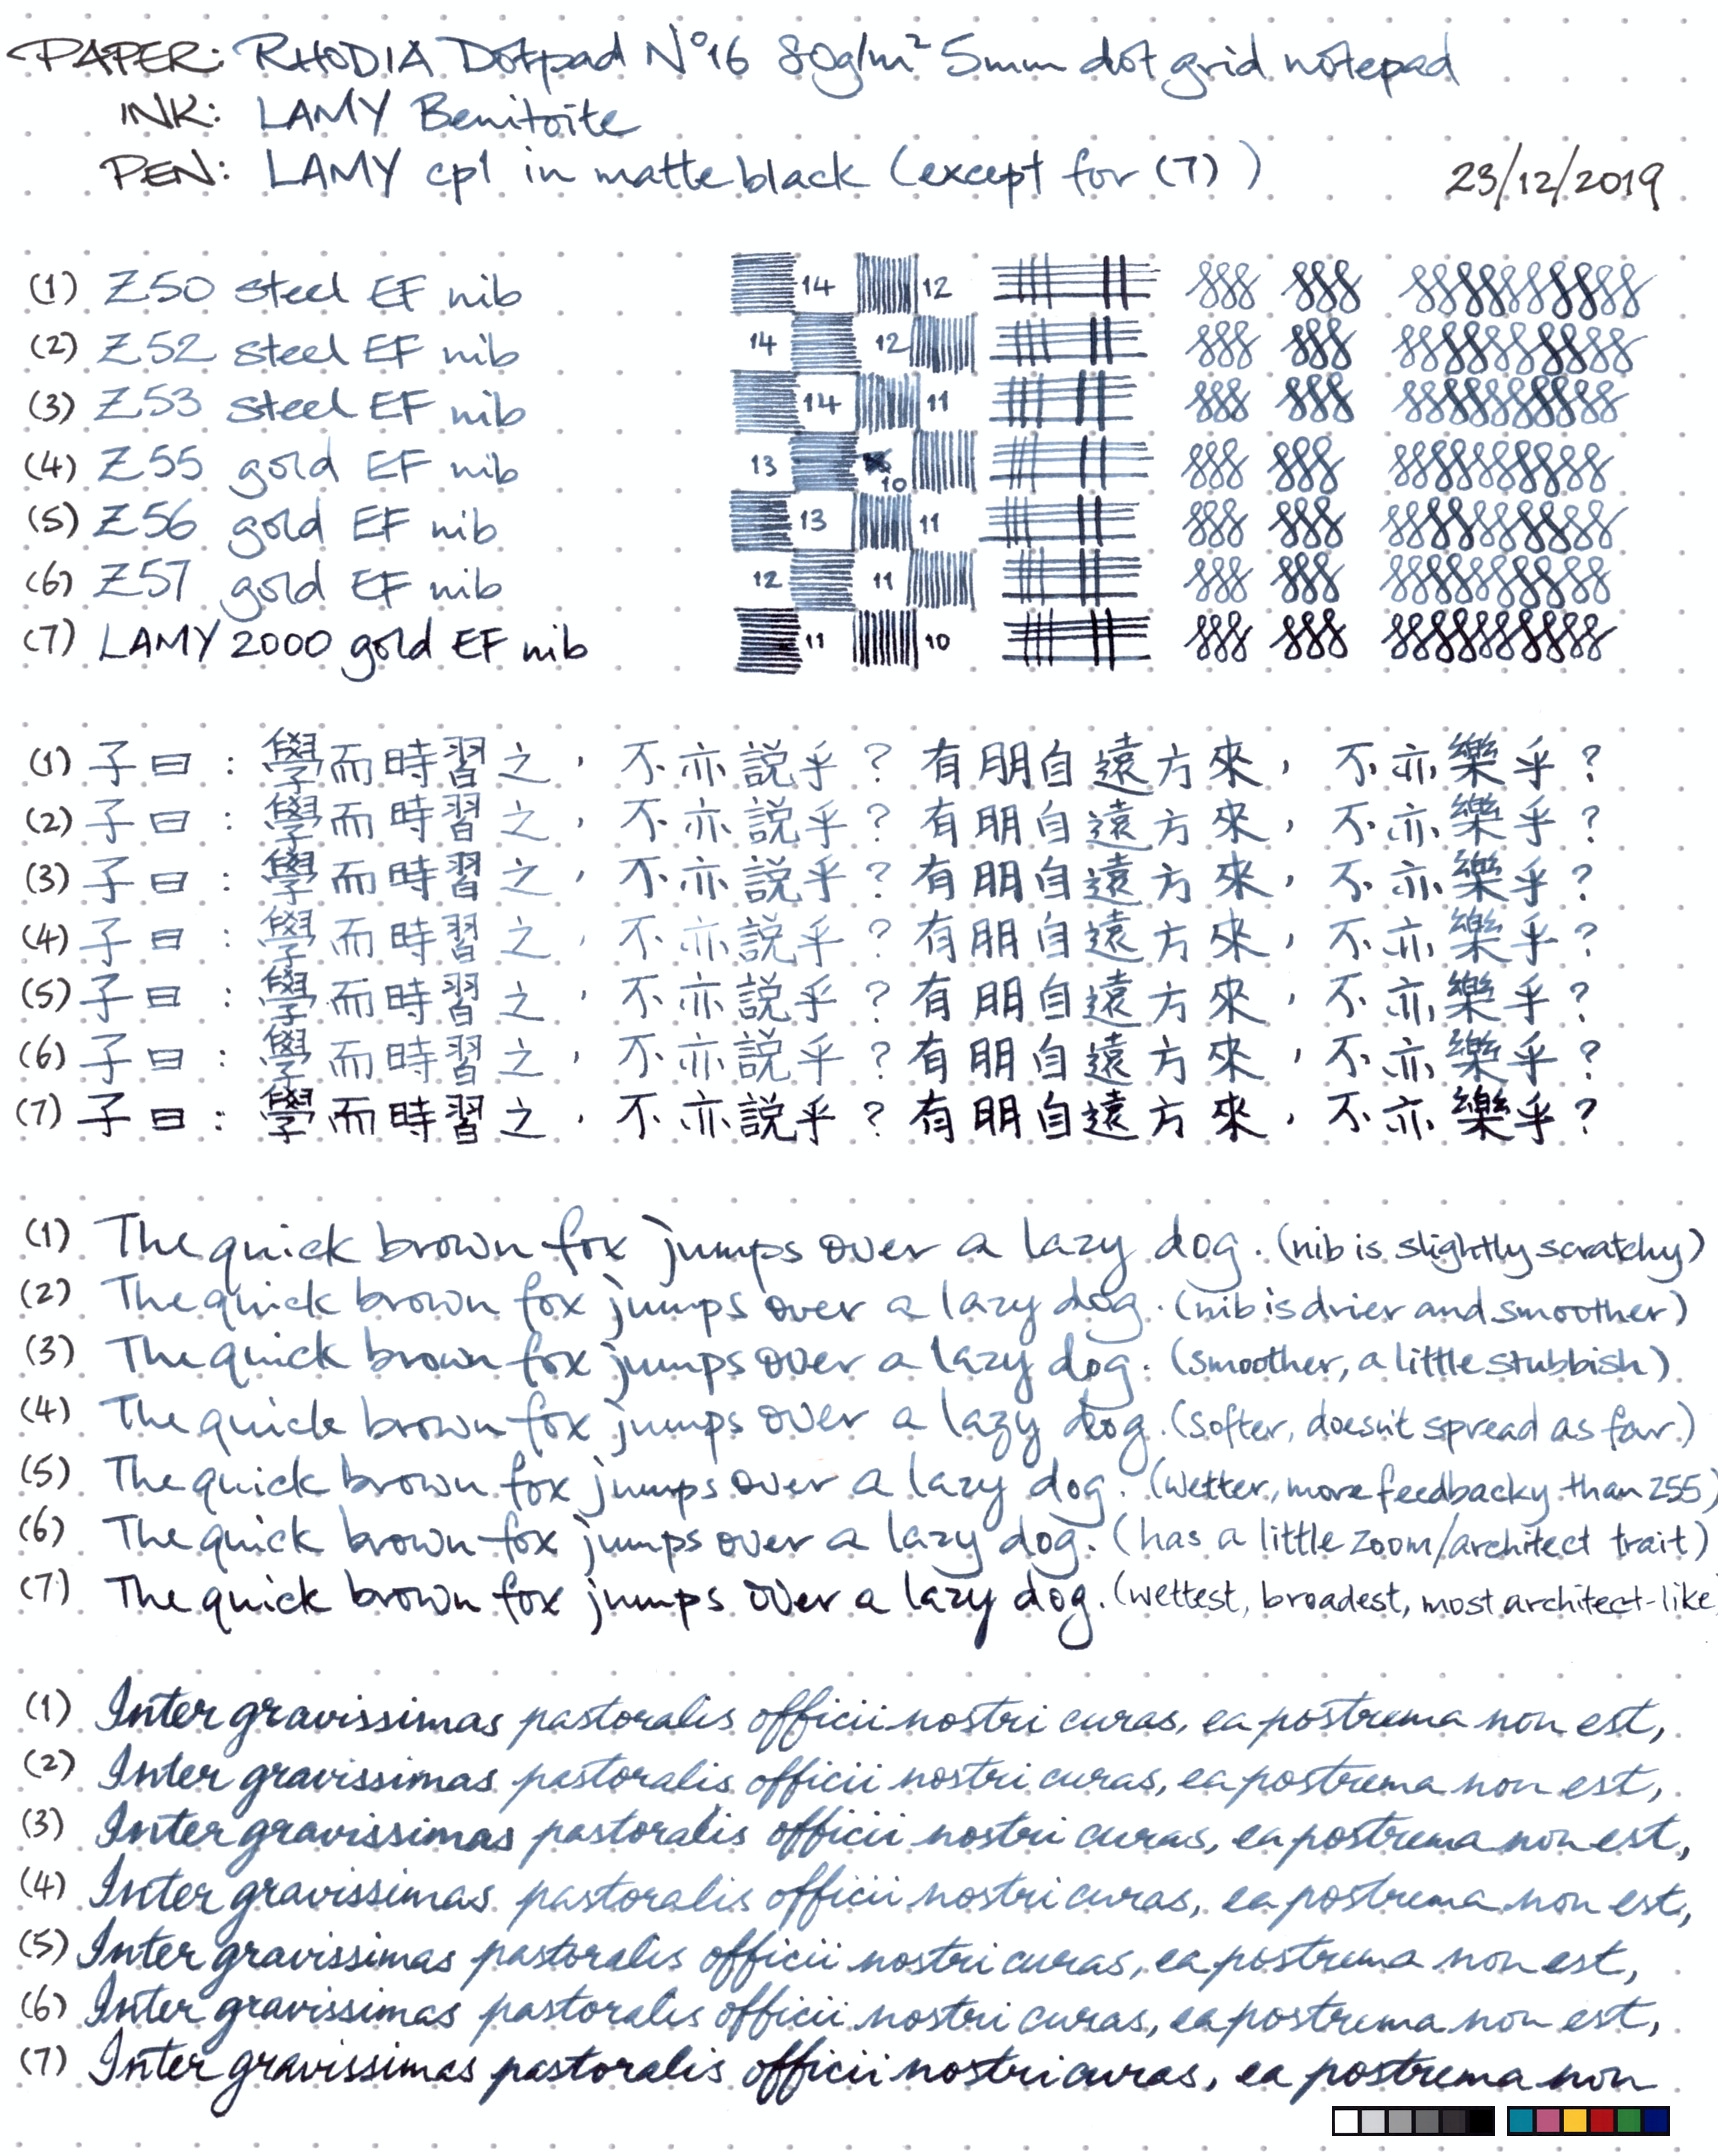 PAPER: RHODIA Dotpad N°16 80g/m² 5mm dot grid notepad
INK: LAMY Benitoite
PEN: LAMY cp1 in matte black (except for (7))
23/12/2019
(1) Z50 steel EF nib 14 12
(2) Z52 steel EF nib 14 12
(3) Z53 steel EF nib 14 11
(4) Z55 gold EF nib 13 10
(5) Z56 gold EF nib 13 11
(6) Z57 gold EF nib 12 11
(7) LAMY 2000 gold EF nib 11 10
(1) 子曰：學而時習之，不亦說乎？有朋自遠方來，不亦樂乎？
(2) 子曰：學而時習之，不亦說乎？有朋自遠方來，不亦樂乎？
(3) 子曰：學而時習之，不亦說乎？有朋自遠方來，不亦樂乎？
(4) 子曰：學而時習之，不亦說乎？有朋自遠方來，不亦樂乎？
(5) 子曰：學而時習之，不亦說乎？有朋自遠方來，不亦樂乎？
(6) 子曰：學而時習之，不亦說乎？有朋自遠方來，不亦樂乎？
(7) 子曰：學而時習之，不亦說乎？有朋自遠方來，不亦樂乎？
(1) The quick brown fox jumps over a lazy dog. (nib is slightly scratchy)
(2) The quick brown fox jumps over a lazy dog. (nib is drier and smoother)
(3) The quick brown fox jumps over a lazy dog. (smoother, a little stubbish)
(4) The quick brown fox jumps over a lazy dog. (softer, doesn't spread as far.)
(5) The quick brown fox jumps over a lazy dog. (wetter, more feedbacky than Z55)
(6) The quick brown fox jumps over a lazy dog. (has a little zoom/architect trait)
(7) The quick brown fox jumps over a lazy dog. (wettest, broadest, most architect-like)
(1) Inter gravissimas pastoralis officii nostri curas, ea postrema non est,
(2) Inter gravissimas pastoralis officii nostri curas, ea postrema non est,
(3) Inter gravissimas pastoralis officii nostri curas, ea postrema non est,
(4) Inter gravissimas pastoralis officii nostri curas, ea postrema non est,
(5) Inter gravissimas pastoralis officii nostri curas, ea postrema non est,
(6) Inter gravissimas pastoralis officii nostri curas, ea postrema non est,
(7) Inter gravissimas pastoralis officii nostri curas, ea postrema non